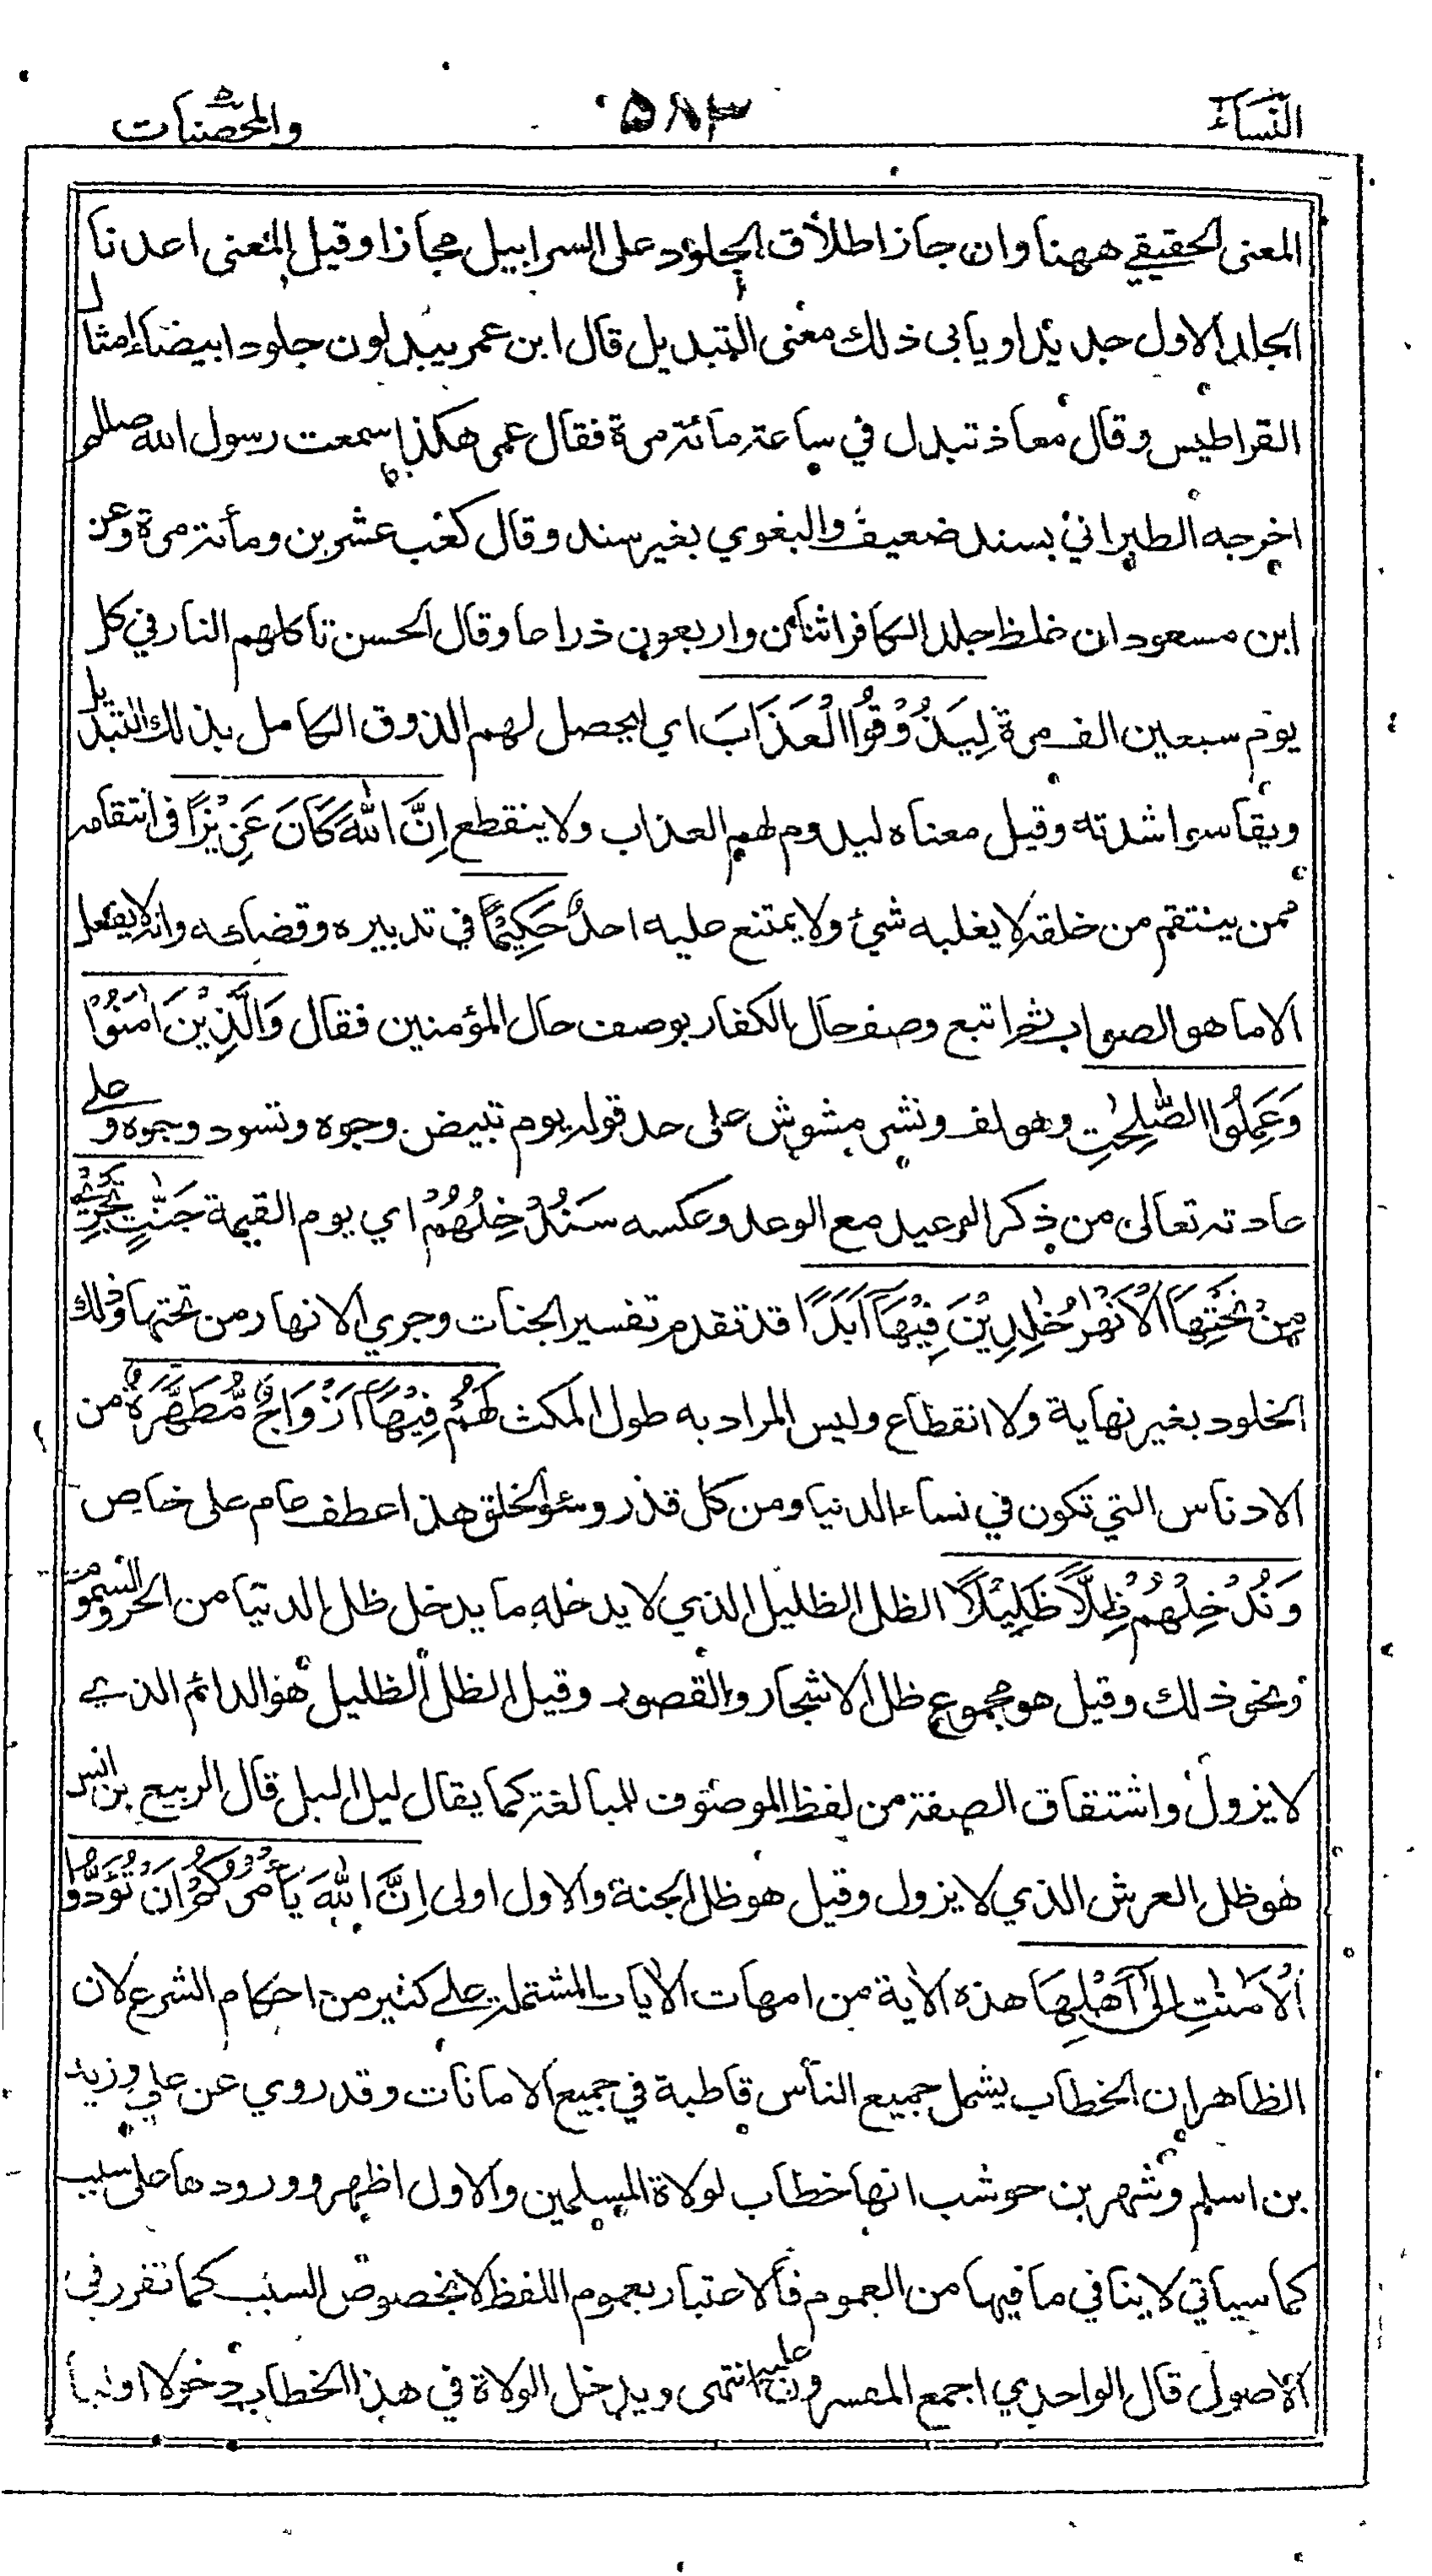 النساء ۵۸۳ والمحصنات
المعنى الحقيقي ههنا وان جاز اطلاق الجلود على السرابيل مجازا وقيل المعنى اعدنا
الجلد الاول جديدا ويابى ذلك معنى التبديل قال ابن عمر يبدلون جلودا بيضاء امثال
القراطيس وقال معاذ تبدل في ساعة مائة مرة فقال عمر هكذا سمعت رسول الله صللم
اخرجه الطبراني بسند ضعيف والبغوي بغير سند وقال كعب عشرين ومائة مرة وعن
ابن مسعود ان غلظ جلد الكافر اثنان واربعون ذراعا وقال الحسن تاكلهم النار في كل
يوم سبعين الف مرة لِيَذُوْقُوا الْعَذَابَ اي ليحصل لهم الذوق الكامل بذلك التبديل
ويقاسوا شدته وقيل معناه ليدوم لهم العذاب ولا ينقطع اِنَّ اللّٰهَ كَانَ عَزِيْزًا في انتقامه
ممن ينتقم من خلقه لا يغلبه شيء ولا يمتنع عليه احد حَكِيْمًا في تدبيره وقضائه وانه لا يفعل
الا ما هو الصواب ثم اتبع وصف حال الكفار بوصف حال المؤمنين فقال وَالَّذِيْنَ اٰمَنُوْا
وَعَمِلُوا الصّٰلِحٰتِ وهو لف ونشر مشوش على حد قوله يوم تبيض وجوه وتسود وجوه وعلى
عادته تعالى من ذكر الوعيد مع الوعد وعكسه سَنُدْخِلُهُمْ اي يوم القيمة جَنّٰتٍ تَجْرِيْ
مِنْ تَحْتِهَا الْاَنْهٰرُ خٰلِدِيْنَ فِيْهَآ اَبَدًا قد تقدم تفسير الجنات وجري الانهار من تحتها وذلك
الخلود بغير نهاية ولا انقطاع وليس المراد به طول المكث لَهُمْ فِيْهَآ اَزْوَاجٌ مُّطَهَّرَةٌ من
الادناس التي تكون في نساء الدنيا ومن كل قذر وسوء الخلق هذا عطف عام على خاص
وَنُدْخِلُهُمْ ظِلًّا ظَلِيْلًا الظل الظليل الذي لا يدخله ما يدخل ظل الدنيا من الحر والسموم
ونحو ذلك وقيل هو مجموع ظل الاشجار والقصور وقيل الظل الظليل هو الدائم الذي
لا يزول واشتقاق الصفة من لفظ الموصوف للمبالغة كما يقال ليل اليل قال الربيع بن انس
هو ظل العرش الذي لا يزول وقيل هو ظل الجنة والاول اولى اِنَّ اللّٰهَ يَاْمُرُكُمْ اَنْ تُؤَدُّوا
الْاَمٰنٰتِ اِلٰٓى اَهْلِهَا هذه الاية من امهات الايات المشتملة على كثير من احكام الشرع لان
الظاهر ان الخطاب يشمل جميع الناس قاطبة في جميع الامانات وقد روي عن علي وزيد
بن اسلم وشهر بن حوشب انها خطاب لولاة المسلمين والاول اظهر وورودها على سبب
كما سياتي لا ينافي ما فيها من العموم فالاعتبار بعموم اللفظ لا بخصوص السبب كما تقرر في
الاصول قال الواحدي اجمع المفسرون عليه انتهى ويدخل الولاة في هذا الخطاب دخولا اوليا